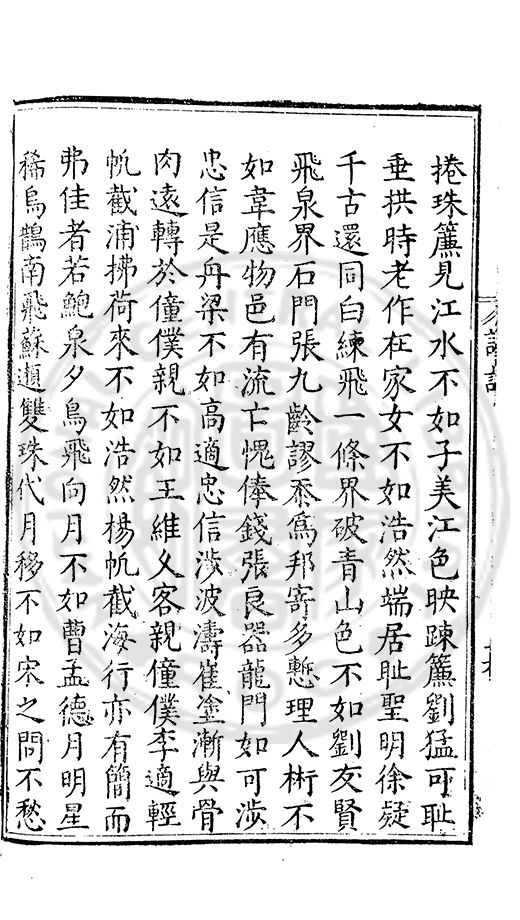 捲珠簾見江水不如子美江色映踈簾劉猛可耻
垂拱時老作在家女不如浩然端居耻聖明徐疑
千古還同白練飛一條界破青山色不如劉友賢
飛泉界石門張九齡謬忝爲邦寄多慙理人術不
如韋應物邑有流亡愧俸錢張良器龍門如可涉
忠信是舟梁不如高適忠信涉波濤崔塗漸與骨
肉遠轉於僮僕親不如王維久客親僮僕李適輕
帆截浦拂荷來不如浩然楊帆截海行亦有簡而
弗佳者若鮑泉夕鳥飛向月不如曹孟德月明星
稀烏鵲南飛蘇頲雙珠代月移不如宋之問不愁